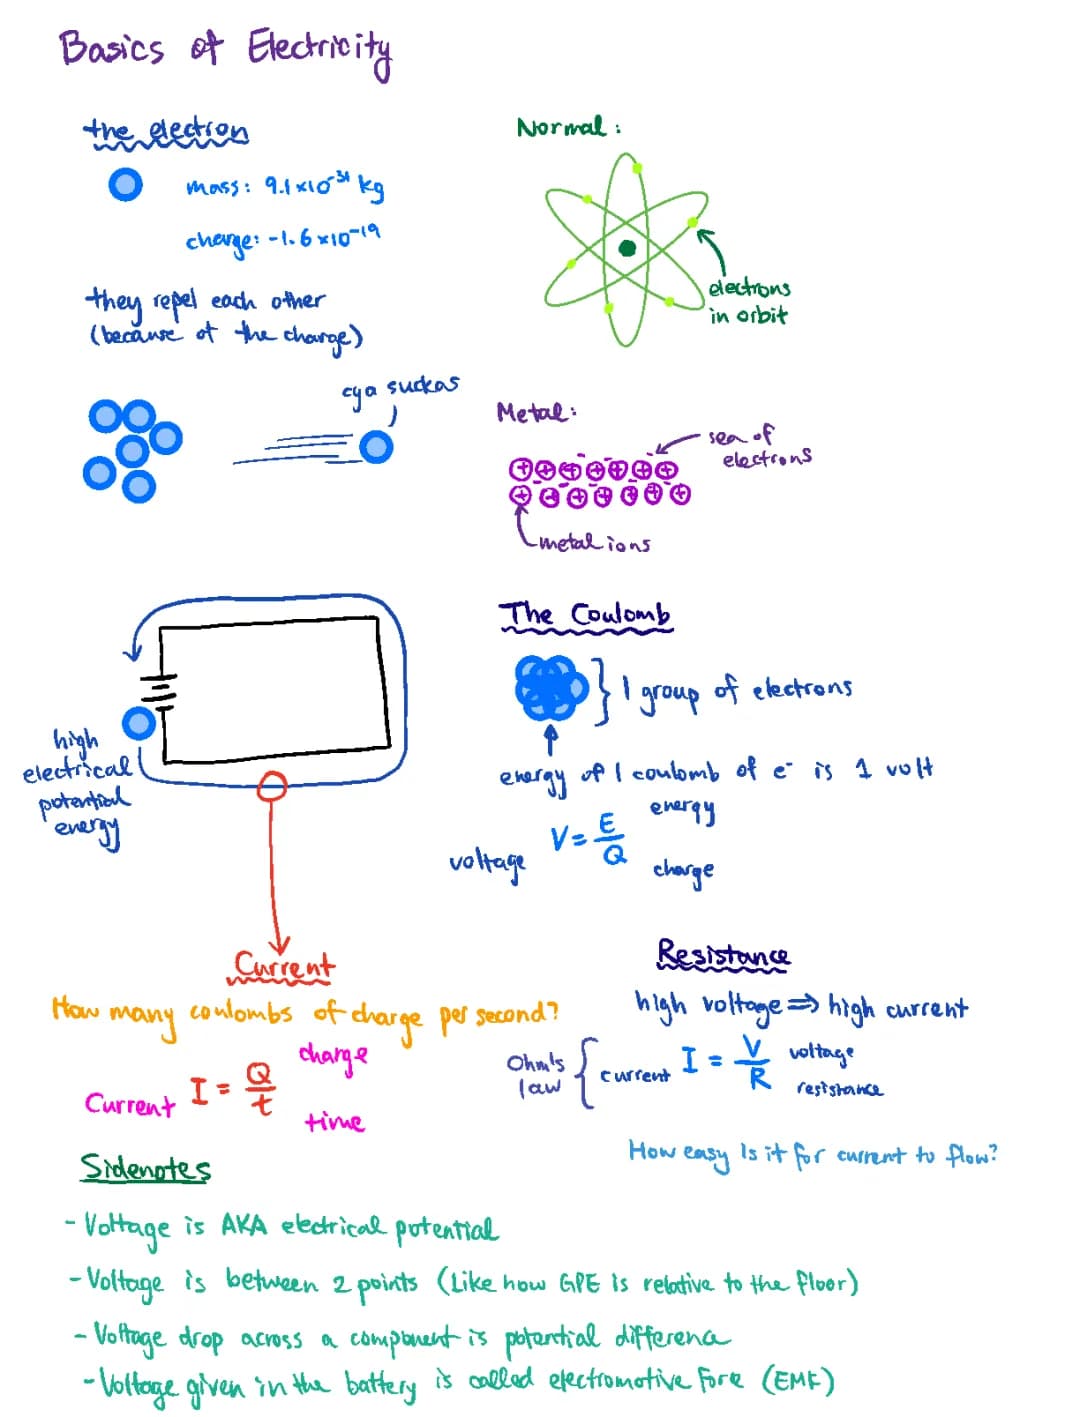 Basics of Electricity
the electron
mass: 9.1×10⁻³¹ kg
charge: -1.6×10⁻¹⁹
they repel each other
(because of the charge)
cya suckas
Normal:
electrons
in orbit
Metal:
sea of
electrons
+ + + + + + +
+ + + + + + +
metal ions
high
electrical
potential
energy
The Coulomb
} 1 group of electrons
energy of 1 coulomb of e⁻ is 1 volt
energy
voltage V = E/Q
charge
Current
How many coulombs of charge per second?
charge
Current I = Q/t
time
Resistance
high voltage ⇒ high current
Ohm's
law { current I = V/R voltage
resistance
How easy is it for current to flow?
Sidenotes
- Voltage is AKA electrical potential
- Voltage is between 2 points (Like how GPE is relative to the floor)
- Voltage drop across a component is potential differenc
- Voltage given in the battery is called electromotive force (EMF)